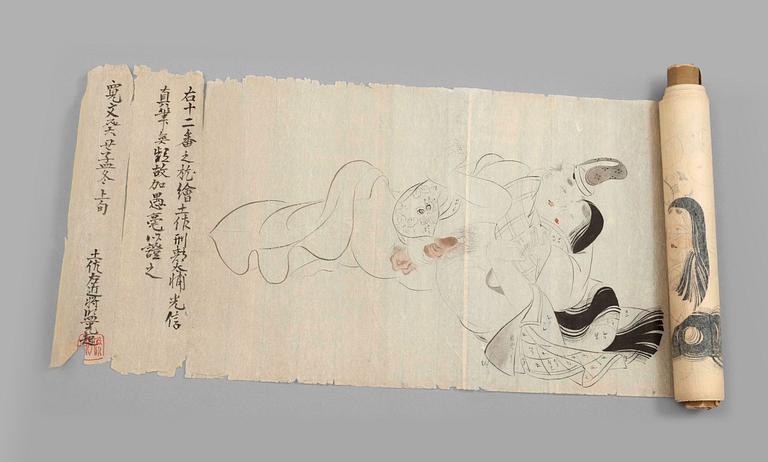 右十二番之戯繪土佐刑部太輔光信
真筆無疑故加愚毫以證之
寛文 孟冬上旬
土佐左近将監光起